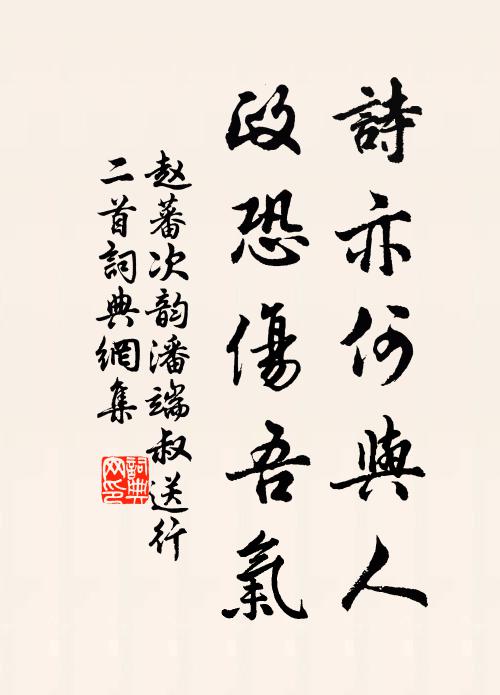 詩亦何與人
政恐傷吾氣
赵蕃次韵潘端叔送行
二首詞典網集
詞典网印